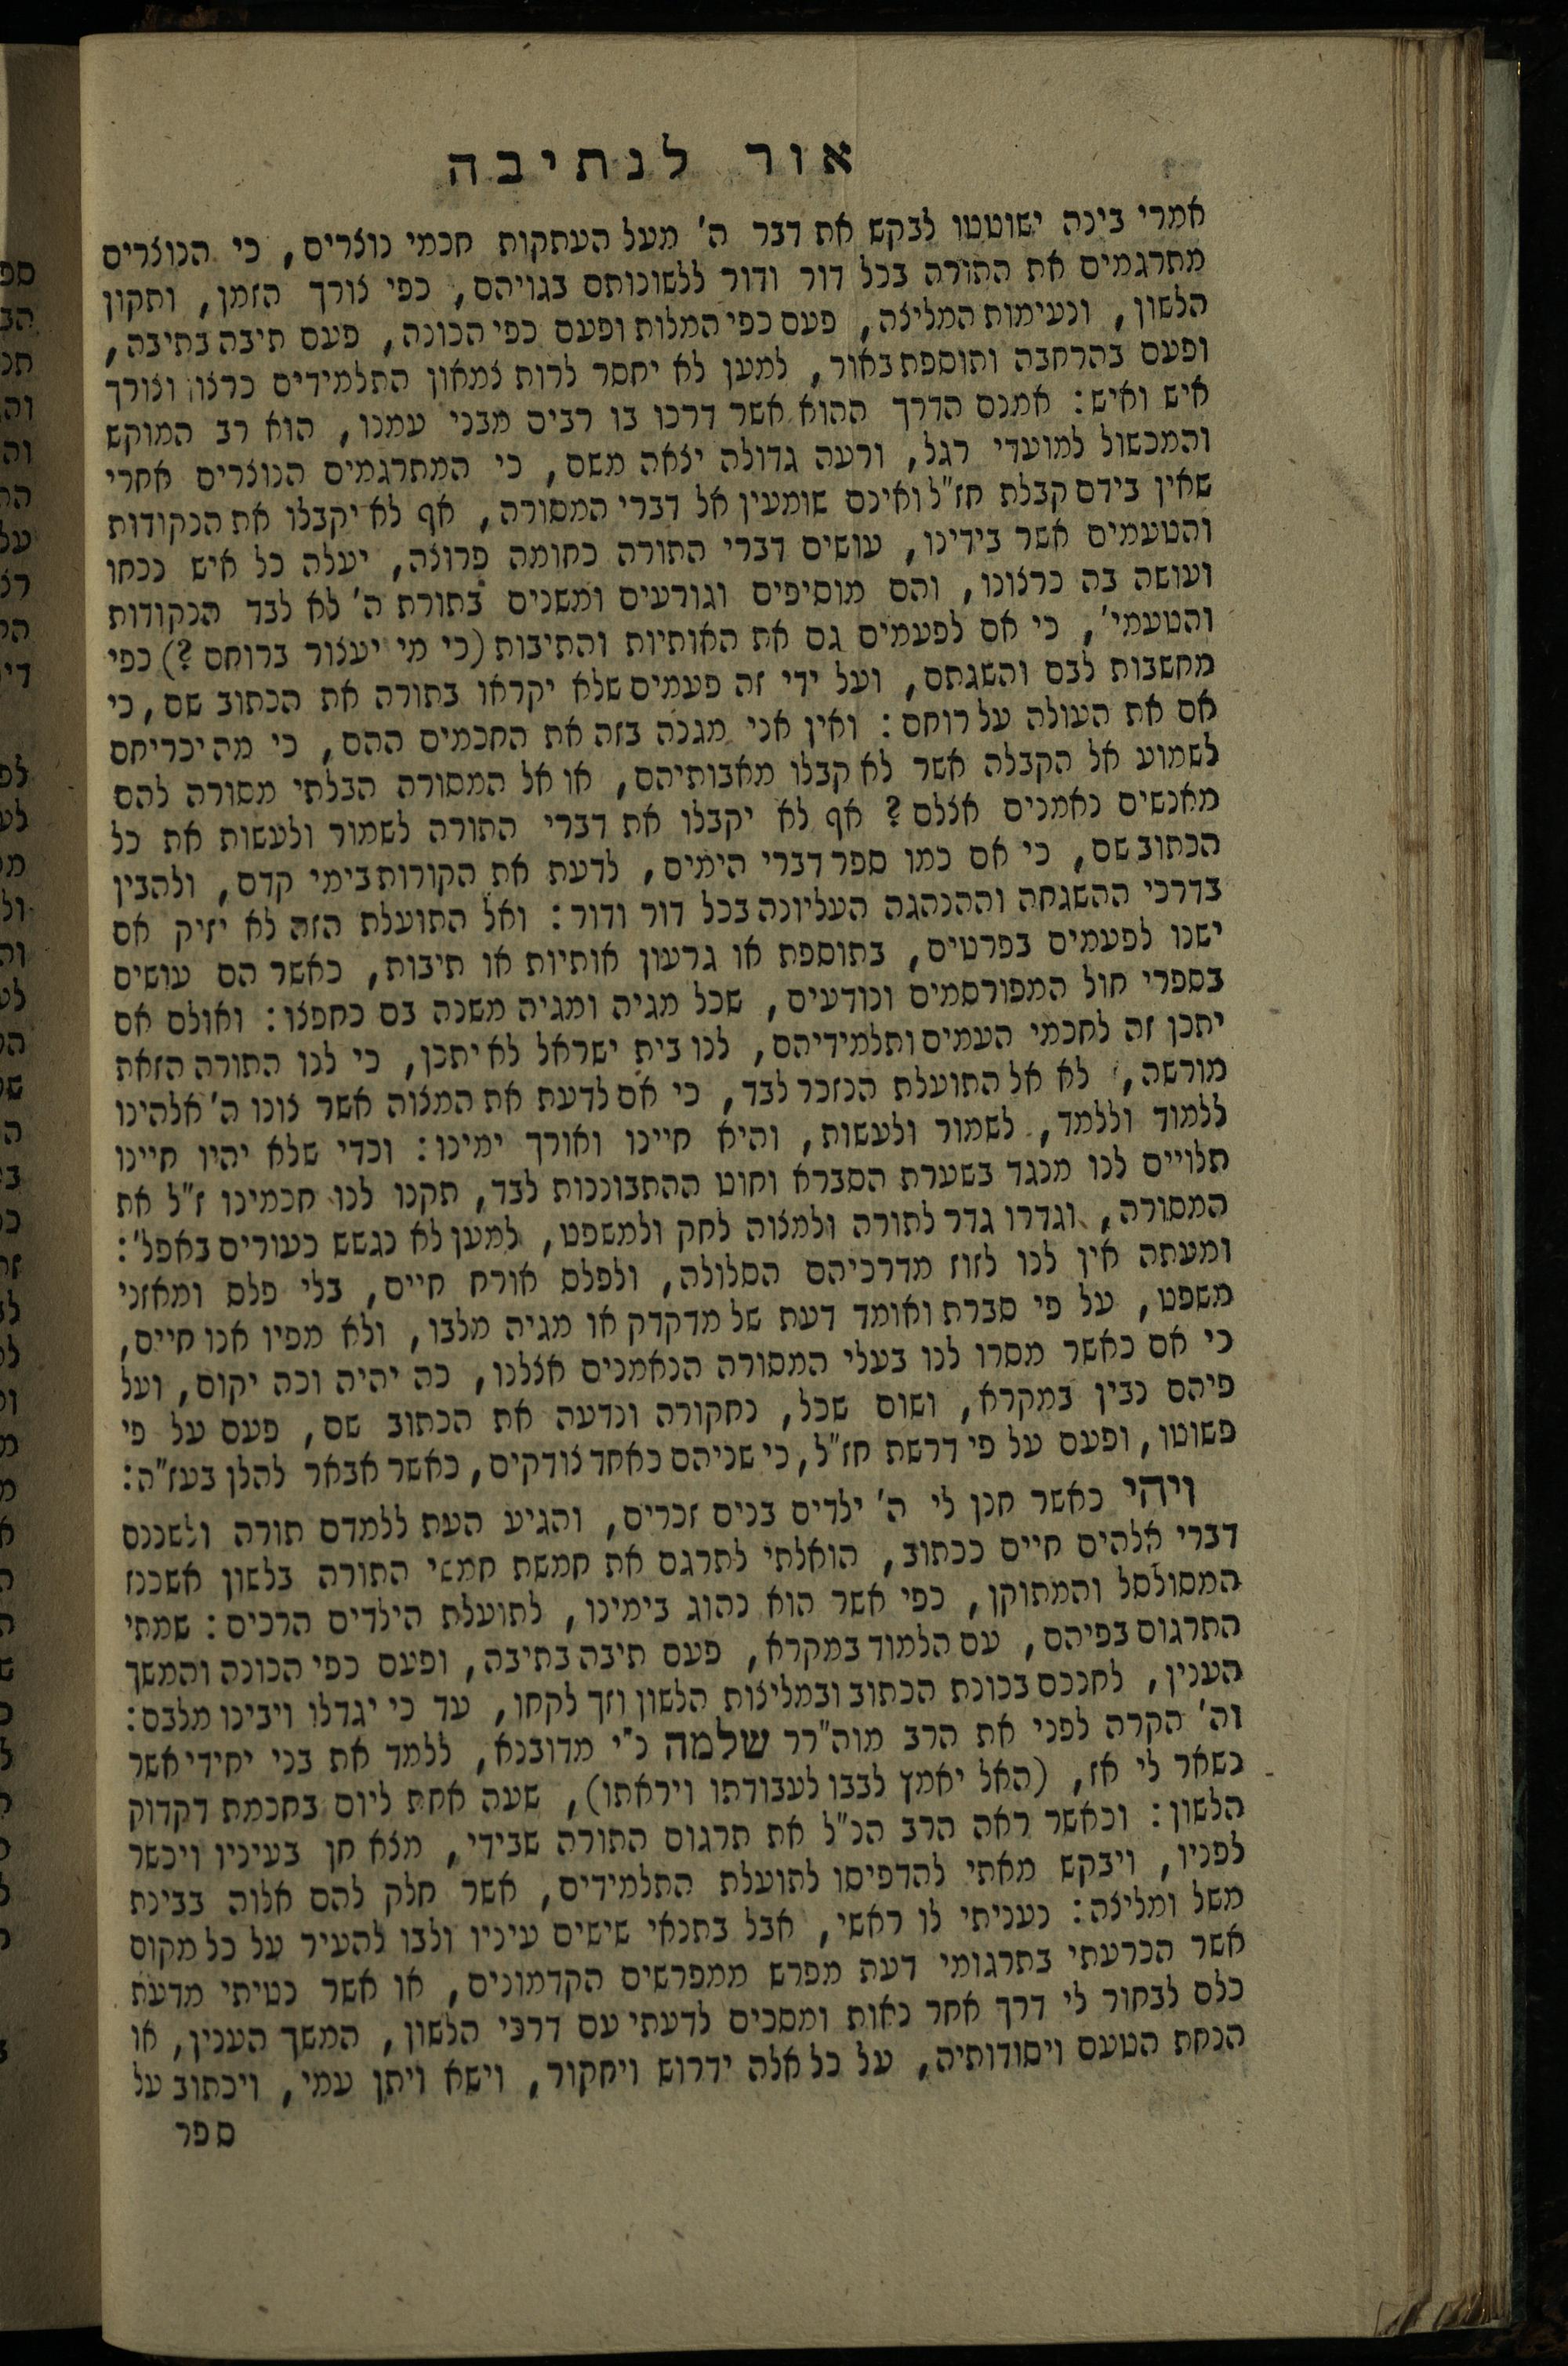 אור לנתיבה
אמרי בינה ישוטטו לבקש את דבר ה' מעל העתקות חכמי נוצרים, כי הנוצרים
מתרגמים את התורה בכל דור ודור ללשונותם בגויהם, כפי צורך הזמן, ותקון
הלשון, ונעימות המליצה, פעם כפי המלות ופעם כפי הכונה, פעם תיבה בתיבה,
ופעם בהרחבה ותוספת באור, למען לא יחסר לרות צמאון התלמידים כרצון וצורך
איש ואיש: אמנם הדרך ההוא אשר דרכו בו רבים מבני עמנו, הוא רב המוקש
והמכשול למועדי רגל, ורעה גדולה יצאה משם, כי המתרגמים הנוצרים אחרי
שאין בידם קבלת חז"ל ואינם שומעין אל דברי המסורה, אף לא יקבלו את הנקודות
והטעמים אשר בידינו, עושים דברי התורה כחומה פרוצה, יעלה כל איש נכחו
ועושה בה כרצונו, והם מוסיפים וגורעים ומשנים בתורת ה' לא לבד הנקודות
והטעמי', כי אם לפעמים גם את האותיות והתיבות (כי מי יעצור ברוחם?) כפי
מחשבות לבם והשגתם, ועל ידי זה פעמים שלא יקראו בתורה את הכתוב שם, כי
אם את העולה על רוחם: ואין אני מגנה בזה את החכמים ההם, כי מה יכריחם
לשמוע אל הקבלה אשר לא קבלו מאבותיהם, או אל המסורה הבלתי מסורה להם
מאנשים נאמנים אצלם? אף לא יקבלו את דברי התורה לשמור ולעשות את כל
הכתוב שם, כי אם כמו ספר דברי הימים, לדעת את הקורות בימי קדם, ולהבין
בדרכי ההשגחה וההנהגה העליונה בכל דור ודור: ואל התועלת הזה לא יזיק אם
ישנו לפעמים בפרטים, בתוספת או גרעון אותיות או תיבות, כאשר הם עושים
בספרי חול המפורסמים ונודעים, שכל מגיה ומגיה משנה בם כחפצו: ואולם אם
יתכן זה לחכמי העמים ותלמידיהם, לנו בית ישראל לא יתכן, כי לנו התורה הזאת
מורשה, לא אל התועלת הנזכר לבד, כי אם לדעת את המצוה אשר צונו ה' אלהינו
ללמוד וללמד, לשמור ולעשות, והיא חיינו ואורך ימינו: וכדי שלא יהיו חיינו
תלויים לנו מנגד בשערת הסברא וחוט ההתבוננות לבד, תקנו לנו חכמינו ז"ל את
המסורה, וגדרו גדר לתורה ולמצוה לחק ולמשפט, למען לא נגשש כעורים באפל':
ומעתה אין לנו לזוז מדרכיהם הסלולה, ולפלס אורח חיים, בלי פלס ומאזני
משפט, על פי סברת ואומד דעת של מדקדק או מגיה מלבו, ולא מפיו אנו חיים,
כי אם כאשר מסרו לנו בעלי המסורה הנאמנים אצלנו, כה יהיה וכה יקום, ועל
פיהם נבין במקרא, ושום שכל, נחקורה ונדעה את הכתוב שם, פעם על פי
פשוטו, ופעם על פי דרשת חז"ל, כי שניהם כאחד צודקים, כאשר אבאר להלן בעז"ה:
ויהי כאשר חנן לי ה' ילדים בנים זכרים, והגיע העת ללמדם תורה ולשננם
דברי אלהים חיים ככתוב, הואלתי לתרגם את חמשת חמשי התורה בלשון אשכנז
המסולסל והמתוקן, כפי אשר הוא נהוג בימינו, לתועלת הילדים הרכים: שמתי
התרגום בפיהם, עם הלמוד במקרא, פעם תיבה בתיבה, ופעם כפי הכונה והמשך
הענין, לחנכם בכונת הכתוב ובמליצות הלשון וזך לקחו, עד כי יגדלו ויבינו מלבם:
וה' הקרה לפני את הרב מוה"רר שלמה נ"י מדובנא, ללמד את בני יחידי אשר
נשאר לי אז, (האל יאמץ לבבו לעבודתו ויראתו), שעה אחת ליום בחכמת דקדוק
הלשון: וכאשר ראה הרב הנ"ל את תרגום התורה שבידי, מצא חן בעיניו ויכשר
לפניו, ויבקש מאתי להדפיסו לתועלת התלמידים, אשר חלק להם אלוה בבינת
משל ומליצה: נעניתי לו ראשי, אבל בתנאי שישים עיניו ולבו להעיר על כל מקום
אשר הכרעתי בתרגומי דעת מפרש ממפרשים הקדמונים, או אשר נטיתי מדעת
כלם לבחור לי דרך אחר נאות ומסכים לדעתי עם דרכי הלשון, המשך הענין, או
הנחת הטעם ויסודותיה, על כל אלה ידרוש ויחקור, וישא ויתן עמי, ויכתוב על
ספר